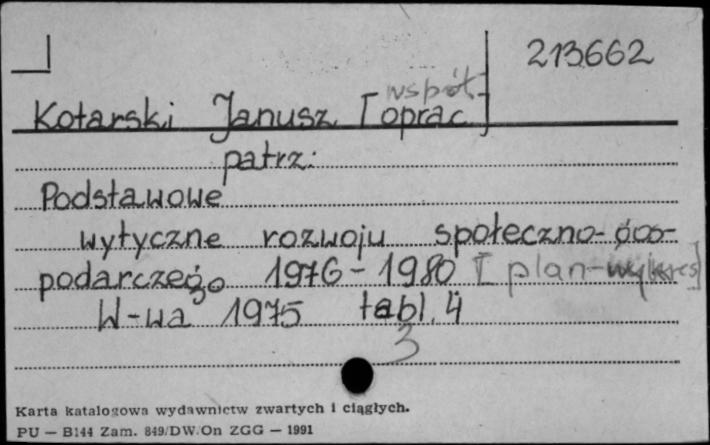 213662
współ.
Kotarski Janusz [oprac.]
patrz:
Podstawowe
wytyczne rozwoju społeczno-gos-
podarczego 1976-1980 [plan-wykres]
W-wa 1975 tabl. 4
3
Karta katalogowa wydawnictw zwartych i ciągłych.
PU — B144 Zam. 849/DW/On ZGG — 1991